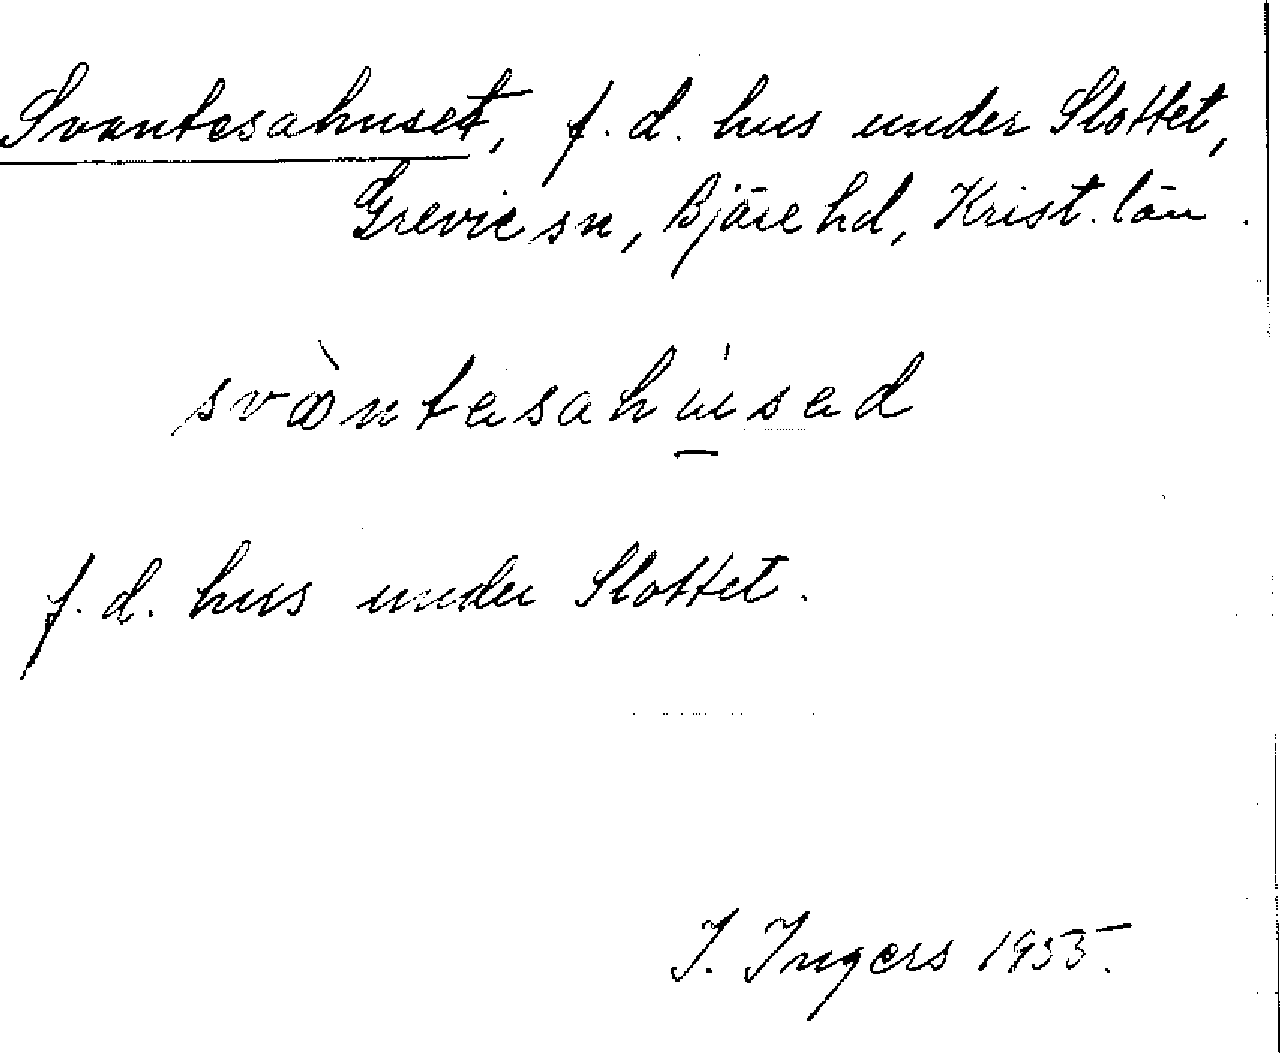 Svantesahuset, f. d. hus under Slottet,
Grevie sn, Bjäre hd, Krist. län.
svàntesahúsed
f. d. hus under Slottet.
I. Ingers 1955.